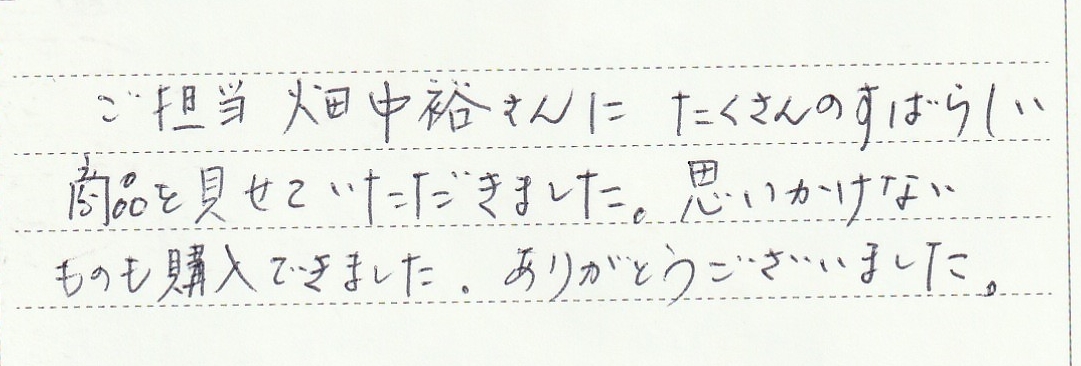 ご担当 畑中裕さんに たくさんのすばらしい
商品を見せていただきました。思いかけない
ものも購入できました。ありがとうございました。